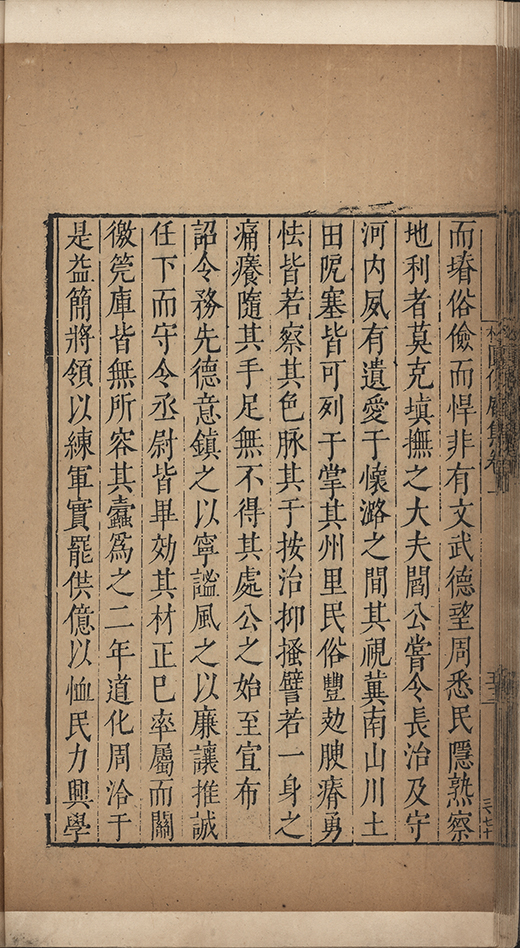 而瘠俗儉而悍非有文武德望周悉民隱熟察
地利者莫克塡撫之大夫閻公嘗令長治及守
河内夙有遺愛于懷潞之間其視冀南山川土
田阨塞皆可列于掌其州里民俗豐廹腴瘠勇
怯皆若察其色脉其于按治抑搔譬若一身之
痛癢隨其手足無不得其處公之始至宣布
詔令務先德意鎮之以寧謐風之以廉讓推誠
任下而守令丞尉皆畢効其材正已率屬而關
徼筦庫皆無所容其蠧爲之二年道化周洽于
是益簡將領以練軍實罷供億以恤民力興學